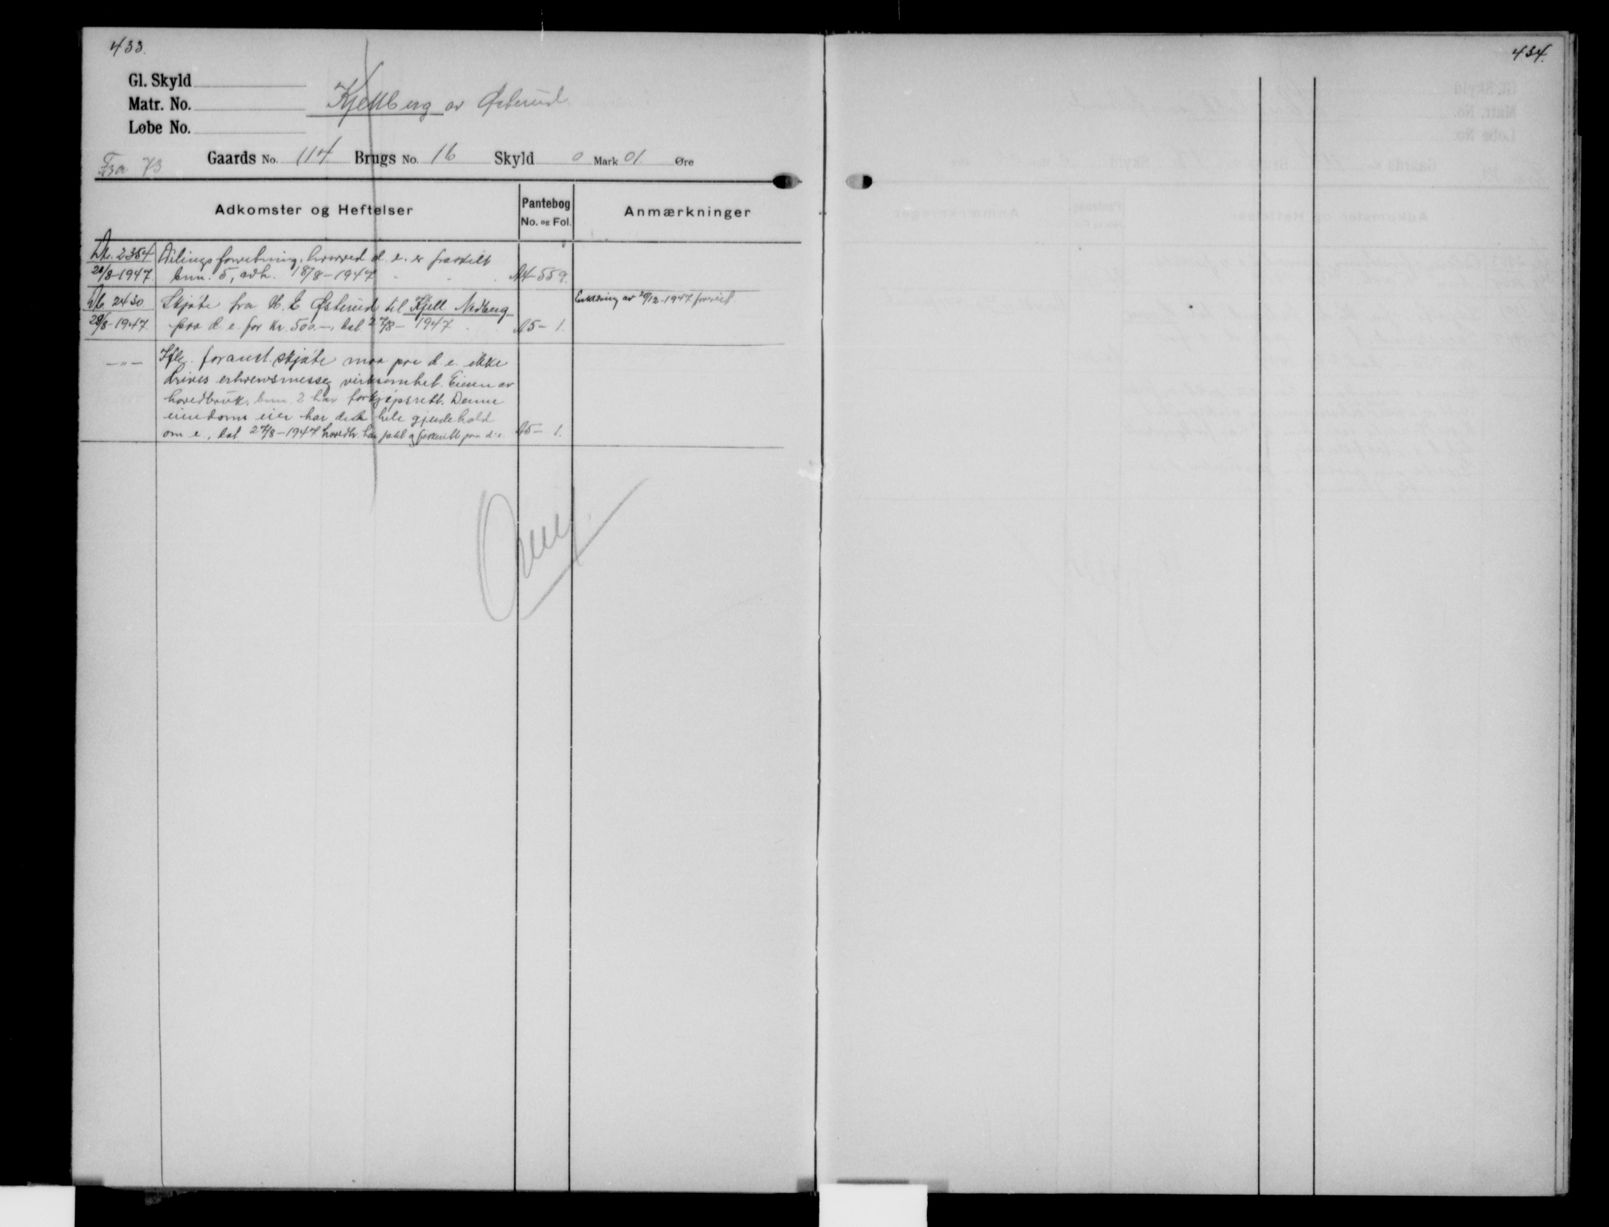 433.
Gl. Skyld
Matr. No.
Løbe No.
Kjellberg av Østerud
Fra 73
Gaards No. 114 Brugs No. 16 Skyld 0 Mark 01 Øre
Adkomster og Heftelser
Pantebog
No. og Fol.
Anmærkninger
forretning, hvorved d. e. er fraskilt
21/8-1947 bnr. 5, avh. 18/8-1947
2430 Skjøte fra Østerud til Kjell Nedberg
28/8-1947 paa d. e. for kr. 500.-, dat 27/8-1947 A5- 1.
Erklæring av 1947
Iflg. foranst. skjøte maa paa d. e. ikke
drives erhvervsmessig virksomhet. Eieren av
hovedbruk, bnr. 2 har forkjøpsrett. Denne
eiendoms eier har det hele gjerdehold
om e., dat 27/8-1947 A5- 1.
434.